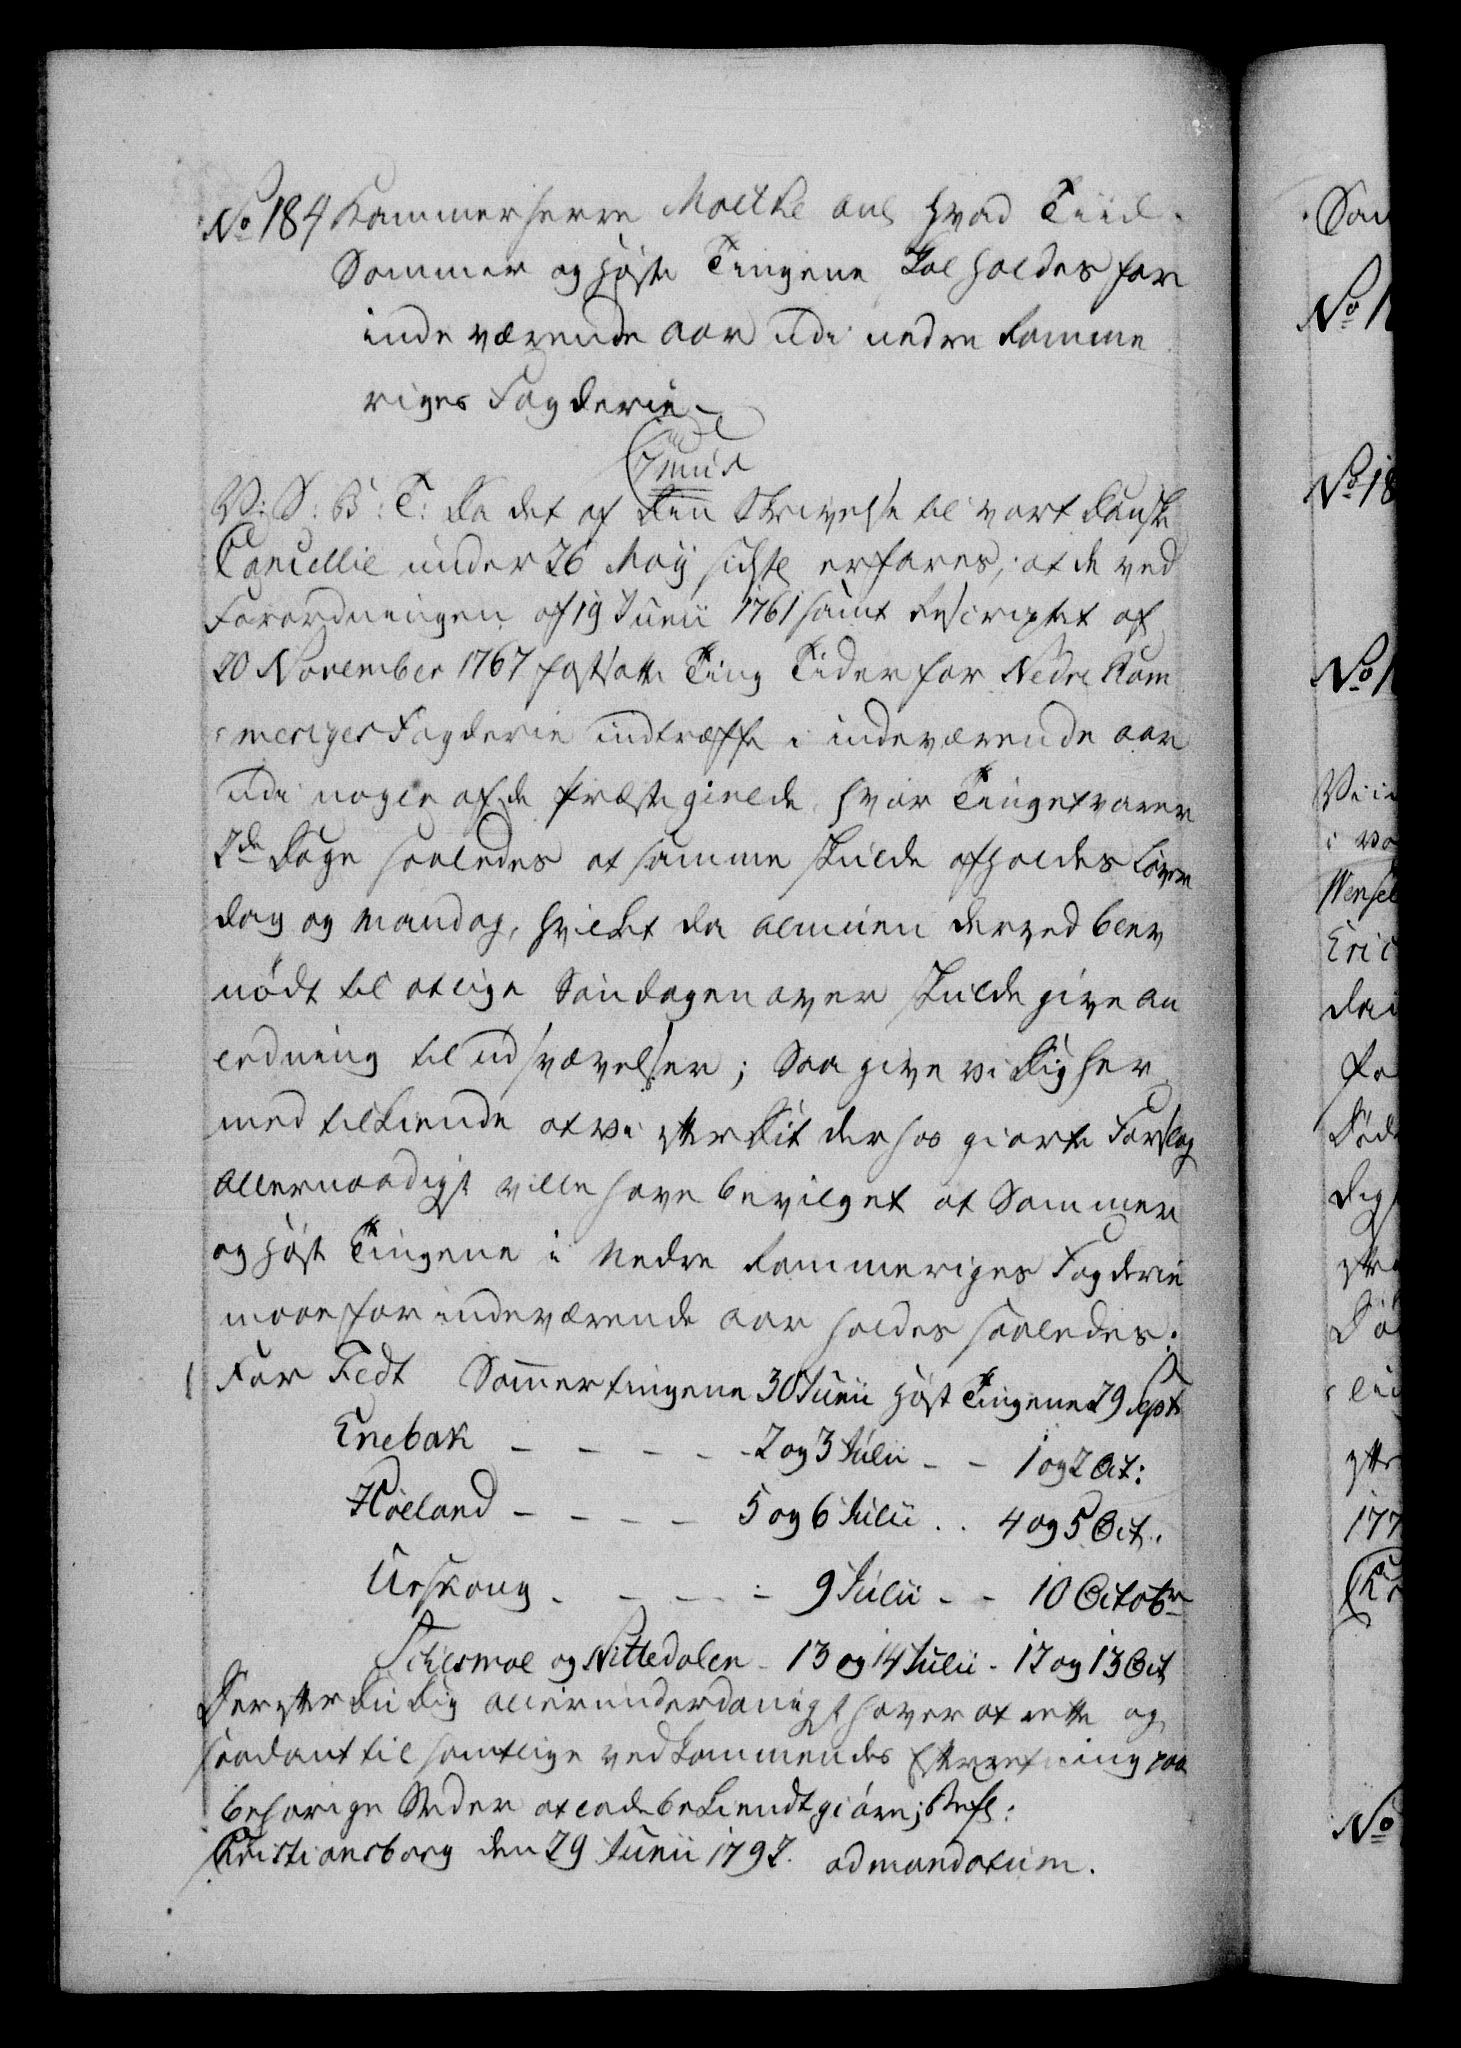 No 184 Kammerherre Moltke anl hvad Tiid
Sommer og Høste Tingene skal holdes for
inde værende Aar udi nedre Romme
riges Fogderie
V: S: B: T: Da det af Din Skrivelse til vort Danske
Cancellie under 26 Maij sidstl erfares, at de ved
Forordningen af 19 Junii 1761 samt Rescriptet af
20 November 1767 fastsatte Ting Tider for Nedre Rom
meriges Fogderie indtræffe i indeværende Aar
udi nogle af de Præstegielde, hvor Tinget varer
2de Dage saaledes at samme skulde afholdes Løver
dag og Mandag, hvilket da Almuen derved blev
nødt til at lige Søndagen over skulde give An
ledning til udsvævelser; Saa give vi Dig her
med tilkiende at vi efter Dit derhos giorte Forslag
allernaadigst ville have bevilget at Sommer
og Høst Tingene i Nedre Rommeriges Fogderie
maae for indeværende Aar holdes saaledes:
For Fedt Sommertingene 30 Junii Høst Tingene 29 Sept
Enebak - - - - - 2 og 3 Julii - - 1 og 2 Oct:
Høeland - - - - 5 og 6 Julii . . 4 og 5 Oct.
Urskoug - - - - 9 Julii - - 10 Octobr
Schesmoe og Nittedalen - 13 og 14 Julii - 12 og 13 Oct
Derefter Du Dig allerunderdanigst haver at rette og
saadant til samtlige vedkommendes Efterretning paa
behørige Steder at lade bekiendtgiøre; Befl:
Christiansborg den 29 Junii 1792. ad mandatum.